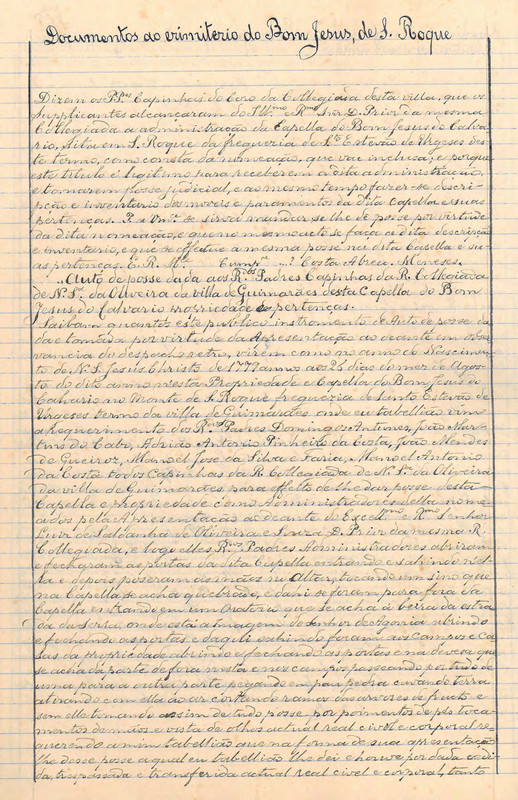 Documentos ao erimiterio do Bom Jesus, de S. Roque
Dizem os P.Pes Capinhas do Coro da Collegiada desta villa, que os
supplicantes alcançaram do Illmo e Rmo Snr D. Prior e a mesma
Collegiada a administração da Capella do Bom Jesus do Calva-
rio, sita em S. Roque da freguezia de Sto Estevão de Urgeses des-
te termo, como consta da nomeação, que vae inclusa; e porque
este titulo é legitimo para receberem a dita administração,
e tomarem posse judicial, e ao mesmo tempo fazer-se descri-
pção e inventario dos moveis e paramentos da dita Capella e suas
pertenças. P. a Vmce se sirva mandar se lhe dê posse por virtude
da dita nomeação, e que no mesmo acto se faça a dita descripção
e inventario, e que se effectue a mesma posse na dita Capella e su-
as pertenças. E. R. Mce Costa Abreu. Meneses.
Auto de posse dada aos Rdos Padres Capinhas da R. Collegiada
de N. Sra da Oliveira da villa de Guimarães desta Capella do Bom
Jesus do Calvario propriedade e pertenças.
Saibam quantos este publico instromento de Auto de posse da-
da e tomada por virtude da Apresentação ao deante em obser-
vancia do despacho retro, virem como no anno do Nascimen-
to de N. S. Jesus Christo de 1779 annos aos 26 dias do mez de Agosto
do dito anno nesta Propriedade e Capella do Bom Jesus do
Calvario no Monte de S. Roque freguezia de Santo Estevão de
Urgeses termo da villa de Guimarães onde eu tabellião vim
a requerimento dos Rdos Padres Domingos Antunes, João Mar-
tins do Cabo, Adrião Antonio Pinheiro da Costa, João Mendes
de Queiroz, Manoel José da Silva e Faria, Manoel Antonio
da Costa todos Capinhas da R. Collegiada de N. Sra da Oliveira
da villa de Guimarães para effeito de lhe dar posse desta
Capella e propriedade como Administradores della nome-
ados pela Apresentação ao deante do Excellmo e Rmo Senhor
Luiz de Saldanha de Oliveira e Souza D. Prior da mesma R.
Collegiada, e logo elles Rdos Padres Administradores abriram
e fecharam as portas da dita Capella entrando e sahindo nel-
la e depois poseram as mãos no Altar, tocando um sino que
na Capella se acha quebrado, e dahi se foram para fora da
Capella entrando em um Oratorio que se acha á beira da estra-
da da serra, onde está a Imagem do Senhor da Agonia abrindo
e fechando as portas e daqui sahindo foram aos Campos e Ca-
sas da Propriedade abrindo e fechando as portas e na deveza que
se acha da parte de fora nesta e nos campos passeando por tudo de
uma para a outra parte pegando em pau pedra e torrão de terra
atirando com ella ao ar cortando ramos das arvores de fructo e
sem elle tomando assim de tudo posse por poimentos de pés toca-
mentos de mãos e vista de olhos actual real civel e corporal re-
querendo a mim tabellião que na forma de sua apresentação
lhe desse posse a qual eu tabellião lhe dei e houve por dada cedi-
da, trespassada e transferida actual real civel e corporal, tanto